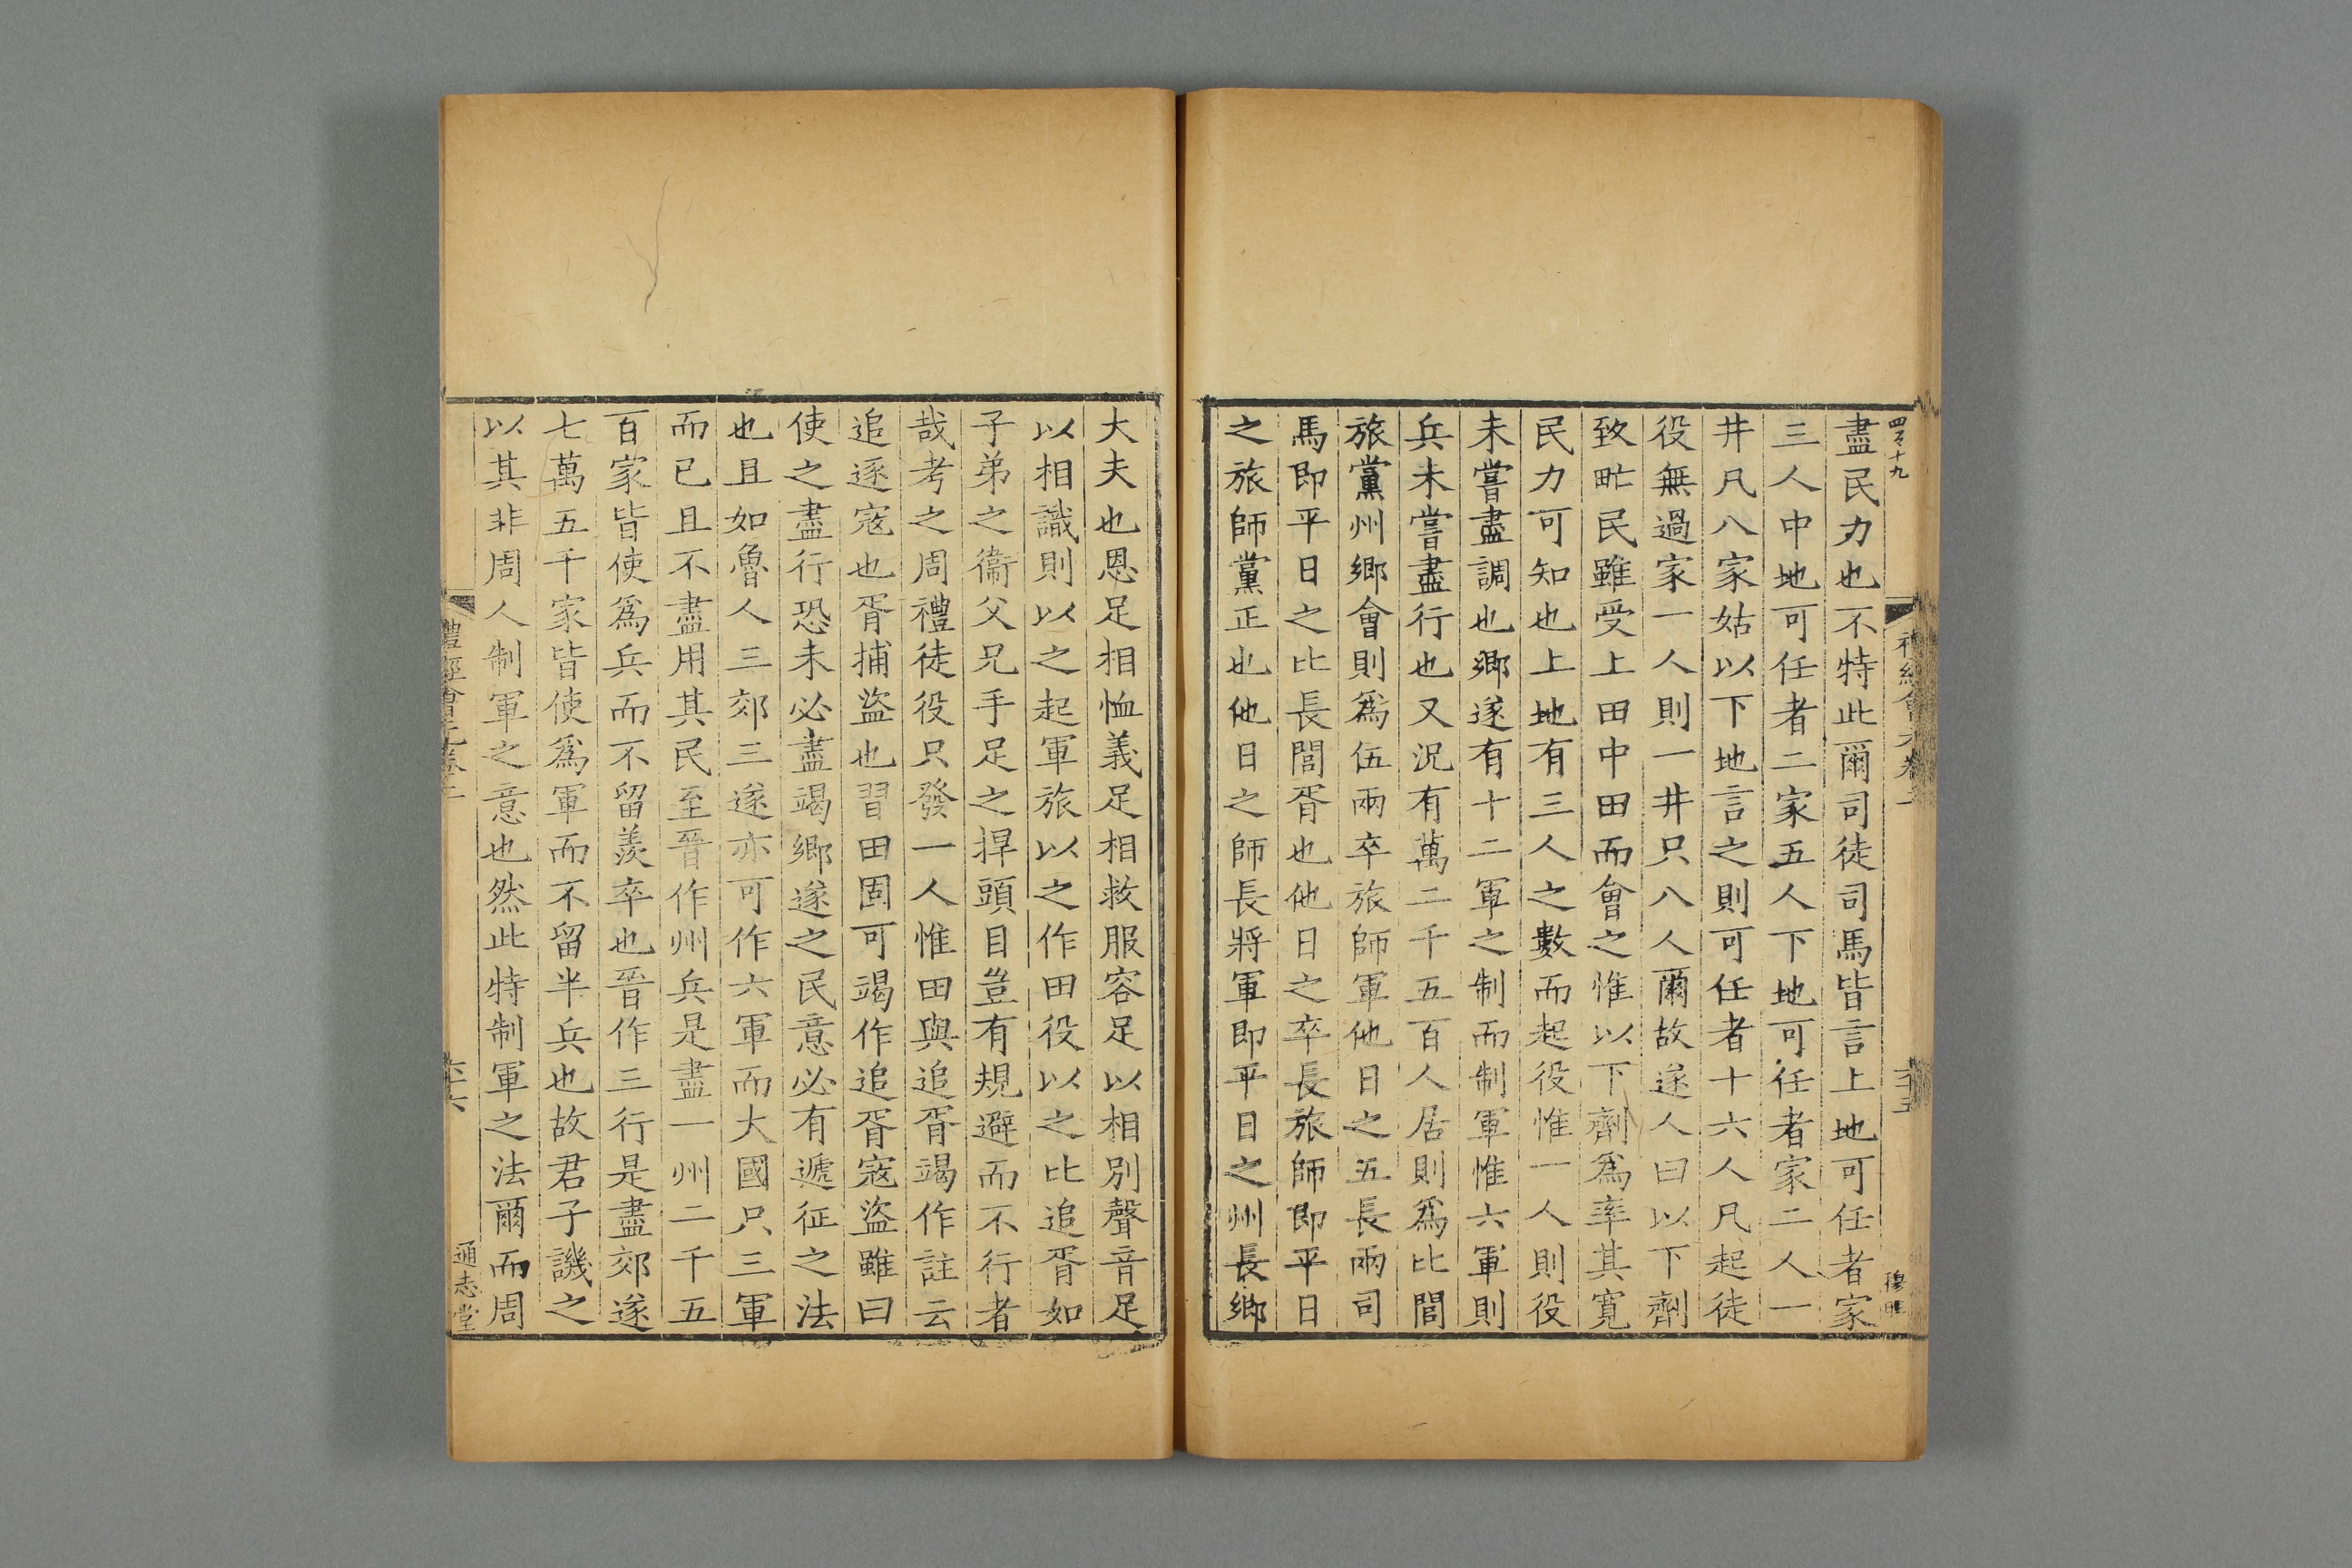 盡民力也不特此爾司徒司馬皆言上地可任者家
三人中地可任者二家五人下地可任者家二人一
井凡八家姑以下地言之則可任者十六人凡起徒
役無過家一人則一井只八人爾故遂人曰以下劑
致甿民雖受上田中田而會之惟以下劑爲率其寬
民力可知也上地有三人之數而起役惟一人則役
未嘗盡調也鄉遂有十二軍之制而制軍惟六軍則
兵未嘗盡行也又況有萬二千五百人居則爲比閭
旅黨州鄉會則爲伍兩卒旅師軍他日之五長兩司
馬即平日之比長閭胥也他日之卒長旅師即平日
之旅師黨正也他日之師長將軍即平日之州長鄉
大夫也恩足相恤義足相救服容足以相別聲音足
以相識則以之起軍旅以之作田役以之比追胥如
子弟之衞父兄手足之捍頭目豈有規避而不行者
哉考之周禮徒役只發一人惟田與追胥竭作註云
追逐寇也胥捕盜也習田固可竭作追胥寇盜雖曰
使之盡行恐未必盡竭鄉遂之民意必有遞征之法
也且如魯人三郊三遂亦可作六軍而大國只三軍
而已且不盡用其民至晉作州兵是盡一州二千五
百家皆使爲兵而不留羨卒也晉作三行是盡郊遂
七萬五千家皆使爲軍而不留半兵也故君子譏之
以其非周人制軍之意也然此特制軍之法爾而周
禮經會元卷二
六十六
通志堂